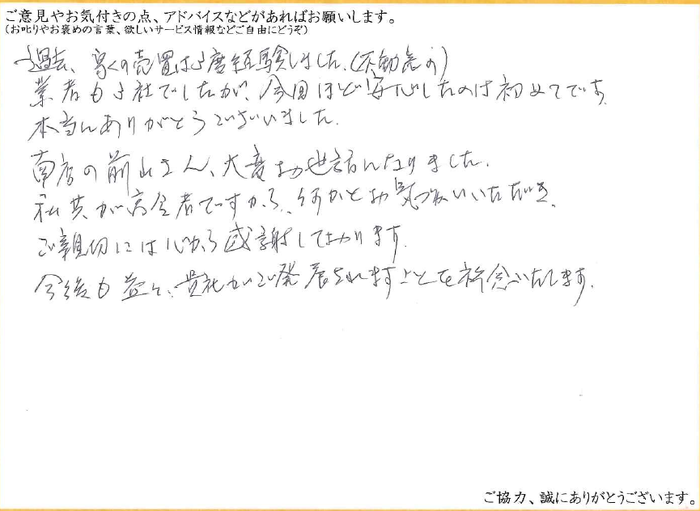 ご意見やお気付きの点、アドバイスなどがあればお願いします。
(お叱りやお褒めの言葉、欲しいサービス情報などご自由にどうぞ)
過去、家の売買は3度経験しました。(不動産の)
業者も3社でしたが、今回ほど安心したのは初めてです
本当にありがとうございました。
南店の前山さん、大変お世話になりました。
私共が高令者ですから、何かとお気づかいいただき、
ご親切には心から感謝しております。
今後も益々、貴社がご発展されますことを祈念いたします。
ご協力、誠にありがとうございます。